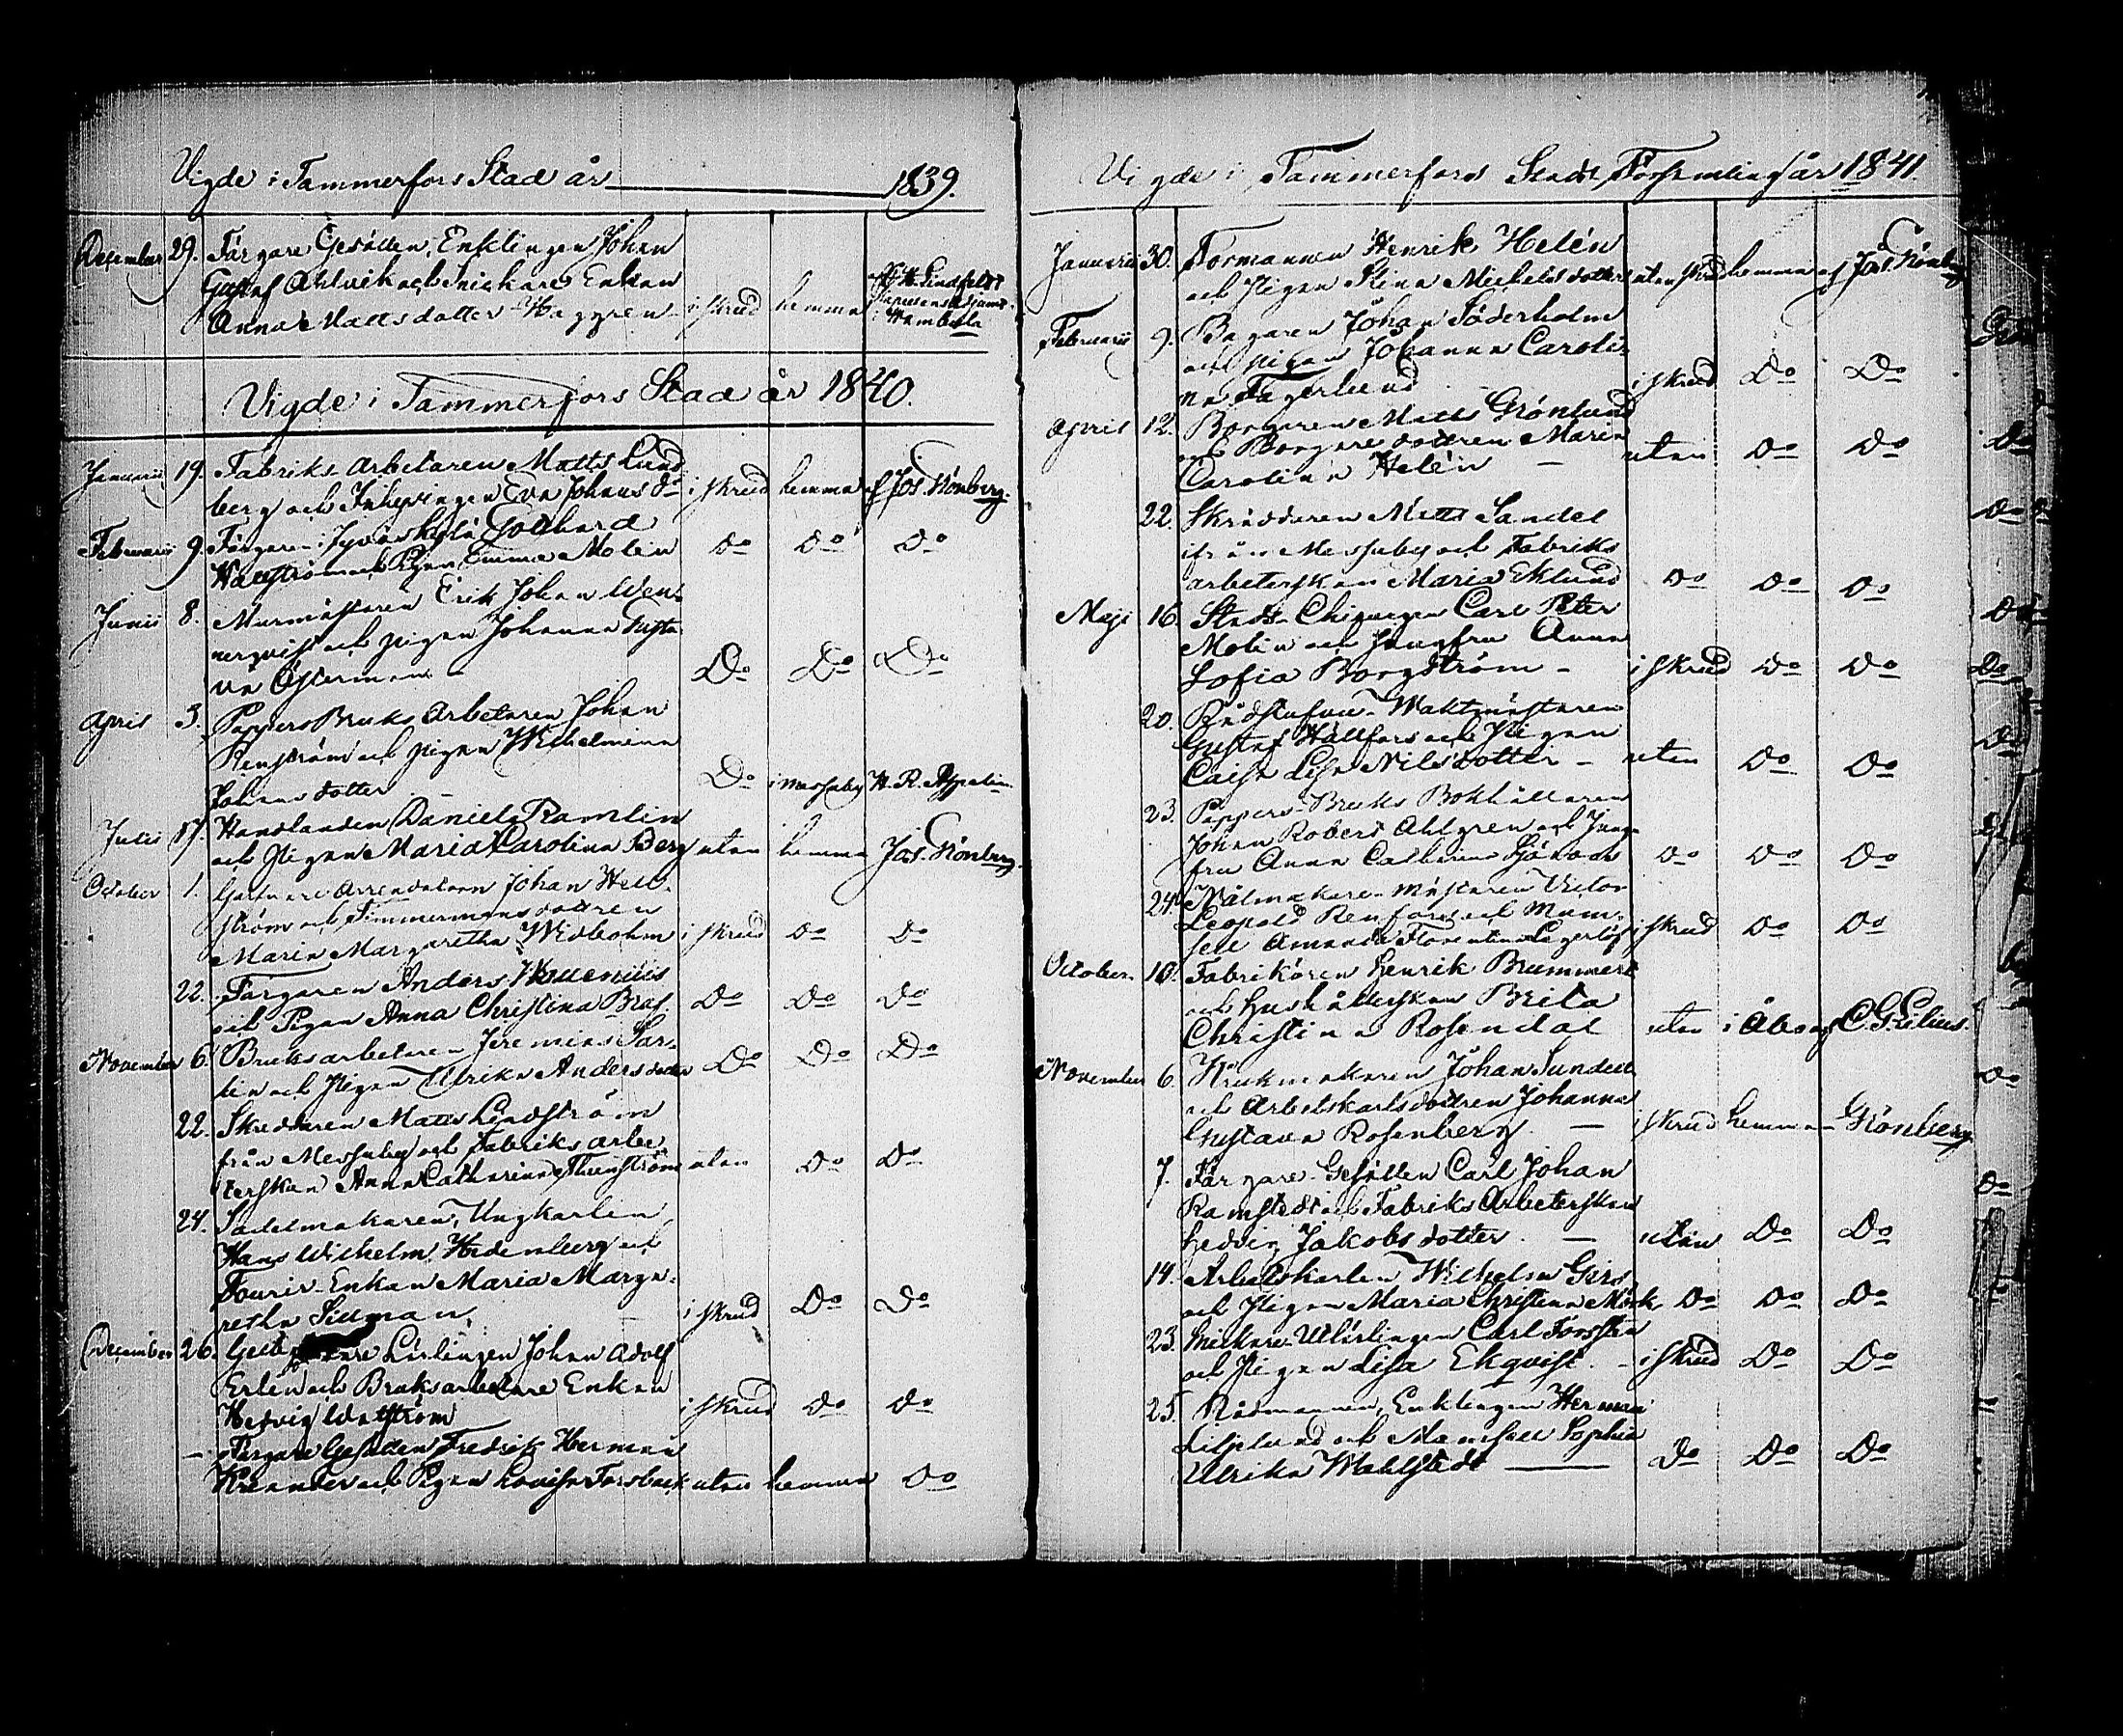 Vigde i Tammerfors Stad år 1839.
December 29. Färgare Gesällen, Enklingen Johan
Gustaf Ahlvik och Snickare Enkan
Anna Mattsdotter Haggren i skrud hemma
Vigde i Tammerfors Stad år 1840.
Januarii 19. Fabriks-Arbetaren Matts Lund
berg och Inhysingen Eva Johans dr i skrud hemma af Jos. Grönberg.
Februarii 9. Färgaren i Jyväskylä Gotthard
Hallström och Pigan Emma Molin Do Do Do
Junii 8. Murmästaren Erik Johan Wen-
nerqvist och pigan Johanna Gusta-
va Österman Do Do Do
April 3. Pappers Bruks Arbetaren Johan
Renström och pigan Wilhelmina
Johans dotter Do i Messuby H. R. Appelin
Julii 17. Handlanden Daniel Ramlin
och Pigan Maria Carolina Berg utan hemma Jos. Grönberg.
October 1. Arrendatorn Johan Hell-
ström och Timmermans dottren
Maria Margaretha Widbohm i skrud Do Do
22. Färgaren Anders Wallenius
och Pigan Anna Christina Do Do Do
November 6. Bruksarbetaren Jeremias Sar-
lin och Pigan Ulrika Anders dotter Do Do Do
22. Skreddaren Matts Lindström
från Messuby och Fabriks arbe-
terskan Anna Catharina Thunström utan Do Do
24. Sadelmakaren, Ungkarlen
Hans Wilhelm Hedenberg och
Fourir-Enkan Maria Marga-
retha Sillman i skrud Do Do
December 26. Lärlingen Johan Adolf
Erlen och Bruksarbetare Enkan
Hedvig Wallström i skrud Do Do
— Färgare Gesällen Fredrik Herman
Krander och Pigan Lovisa Forsback utan hemma Do
Vigde i Tammerfors Stads Församling år 1841.
Januarii 30. Formannen Henrik Helén
och Pigan Stina Michels dotter utan skrud hemma af Jos. Grönberg
Februarii 9. Bagaren Johan Söderholm
och pigan Johanna Caroli-
na Fagerlund i skrud Do Do
April 12. Borgaren Matts Grönlund
och Borgare dottren Maria
Carolina Helén — utan Do Do
22. Skräddaren Matts Sandel
ifrån Messuby och Fabriks
arbeterskan Maria Eklund Do Do Do
Maji 16. Stads-Chirurgen Carl Peter
Molin och Jungfru Anna
Sofia Borgström — i skrud Do Do
20. Rådstufvu-Waktmästaren
Gustaf Hällfors och Pigan
Caisa Lisa Nilsdotter — utan Do Do
23. Pappers-Bruks Bokhållaren
Johan Robert Ahlgren och Jung-
fru Anna Catharina Do Do Do
24. Målmakare-Mästaren Victor
Leopold Renfors och Mam-
sell Amanda Florentina Lagerlöf i skrud Do Do
October 10. Fabrikören Henrik Brummer
och Hushållerskan Brita
Christina Rosendal utan i Åbo af
November 6. Krukmakaren Johan Sundell
och Arbetskarlsdottren Johanna
Gustava Rosenberg. — i skrud hemma Grönberg
7. Färgare-Gesällen Carl Johan
Ramstedt och Fabriks Arbeterskan
Hedvig Jakobs dotter. — utan Do Do
14. Arbetskarlen Wilhelm Girs
och Pigan Maria Christina Mörk Do Do Do
23. Carl Forsstén
och Pigan Lisa Ekqvist. — i skrud Do Do
25. Rådmannen, Enklingen Herman
Liljelund och Mamsell Sophia
Ulrika Wahlstedt — Do Do Do